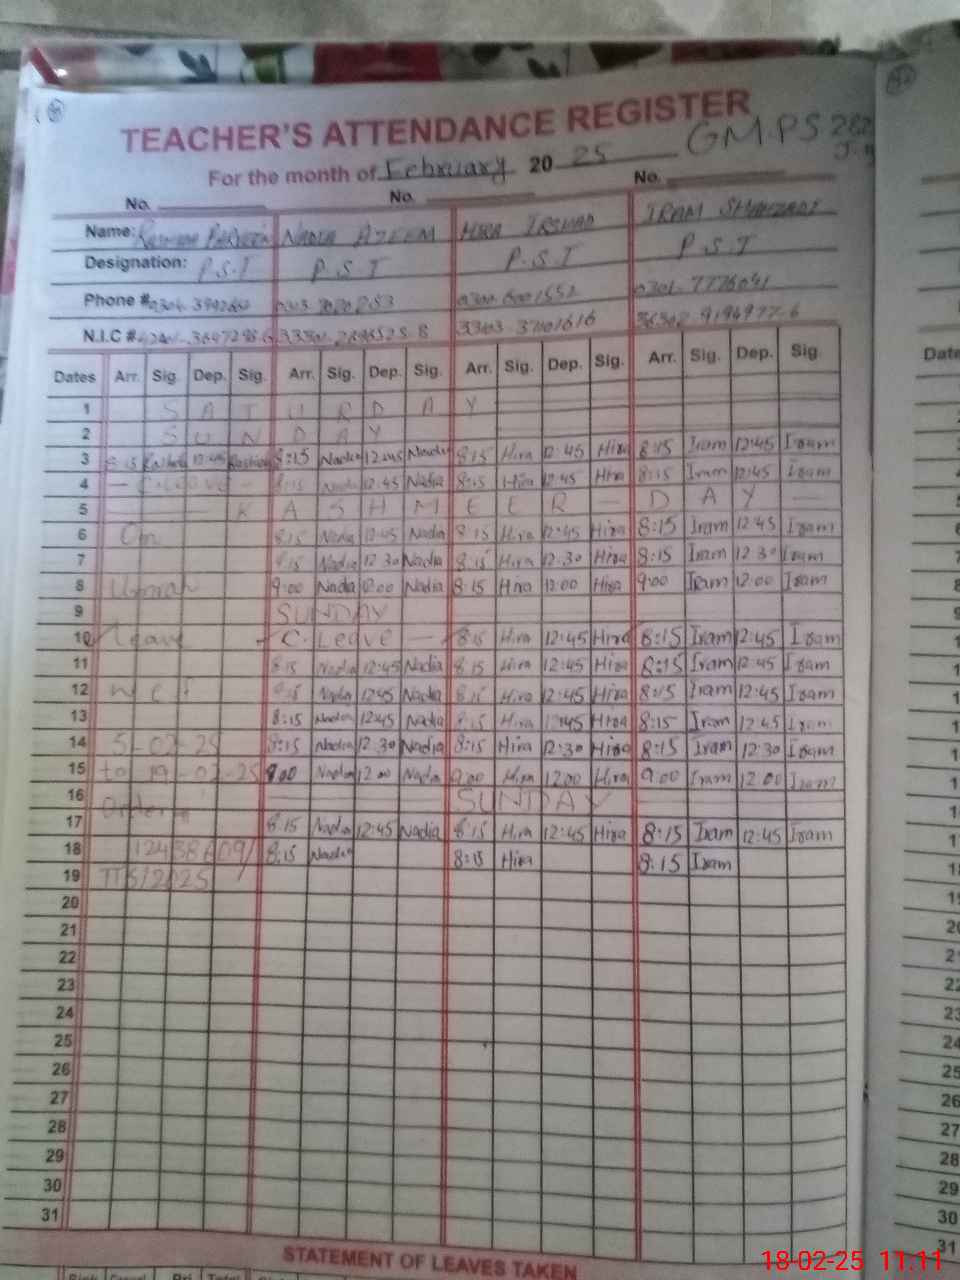 TEACHER'S ATTENDANCE REGISTER
GMPS 282
For the month of February 20 25
No. No. No.
Name: NADIA AZEEM HIRA IRSHAD IRAM SHAHZADI
Designation: P.S.T P.S.T P.S.T P.S.T
Phone # 0301-7776041
N.I.C #
Dates Arr. Sig. Dep. Sig. Arr. Sig. Dep. Sig. Arr. Sig. Dep. Sig. Arr. Sig. Dep. Sig.
1 SATURDAY
2 SUNDAY
3 8:15 12:45 8:15 Nadia 12:45 Nadia 8:15 Hira 12:45 Hira 8:15 Iram 12:45 Iram
4 - C.Leave - 8:15 Nadia 12:45 Nadia 8:15 Hira 12:45 Hira 8:15 Iram 12:45 Iram
5 KASHMEER - DAY -
6 On 8:15 Nadia 12:45 Nadia 8:15 Hira 12:45 Hira 8:15 Iram 12:45 Iram
7 8:15 Nadia 12:30 Nadia 8:15 Hira 12:30 Hira 8:15 Iram 12:30 Iram
8 Umrah 9:00 Nadia 12:00 Nadia 8:15 Hira 12:00 Hira 9:00 Iram 12:00 Iram
9 SUNDAY
10 Leave - C.Leave - 8:15 Hira 12:45 Hira 8:15 Iram 12:45 Iram
11 8:15 Nadia 12:45 Nadia 8:15 Hira 12:45 Hira 8:15 Iram 12:45 Iram
12 w.e.f 8:15 Nadia 12:45 Nadia 8:15 Hira 12:45 Hira 8:15 Iram 12:45 Iram
13 8:15 Nadia 12:45 Nadia 8:15 Hira 12:45 Hira 8:15 Iram 12:45 Iram
14 5-02-25 8:15 Nadia 12:30 Nadia 8:15 Hira 12:30 Hira 8:15 Iram 12:30 Iram
15 to 19-02-25 9:00 Nadia 12:00 Nadia 9:00 Hira 12:00 Hira 9:00 Iram 12:00 Iram
16 SUNDAY
17 8:15 Nadia 12:45 Nadia 8:15 Hira 12:45 Hira 8:15 Iram 12:45 Iram
18 8:15 Nadia 8:15 Hira 8:15 Iram
19
20
21
22
23
24
25
26
27
28
29
30
31
STATEMENT OF LEAVES TAKEN
18-02-25 11:11